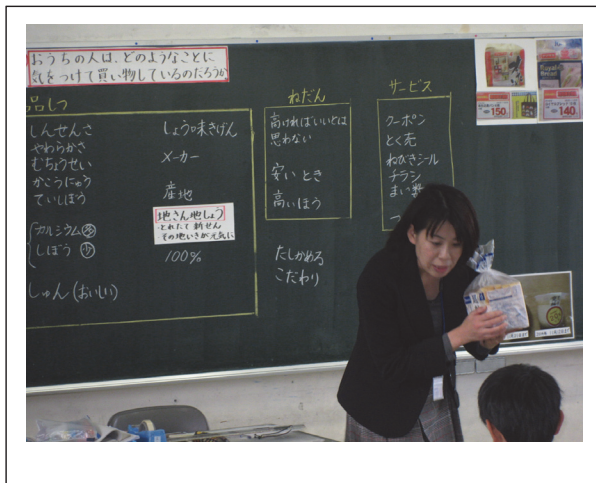 おうちの人は、どのようなことに
気をつけて買い物しているのだろうか
品しつ
しんせんさ
やわらかさ
むちょうせい
かこうにゅう
ていしぼう
カルシウム㊉
しぼう㊛
しゅん(おいしい)
しょう味きげん
メーカー
産地
地さん地しょう
とれたて新せん
その地いきが元気に
100%
ねだん
高ければいいとは
思わない
安いとき
高いほう
たしかめる
こだわり
サービス
クーポン
とく売
ねびきシール
チラシ
150
140